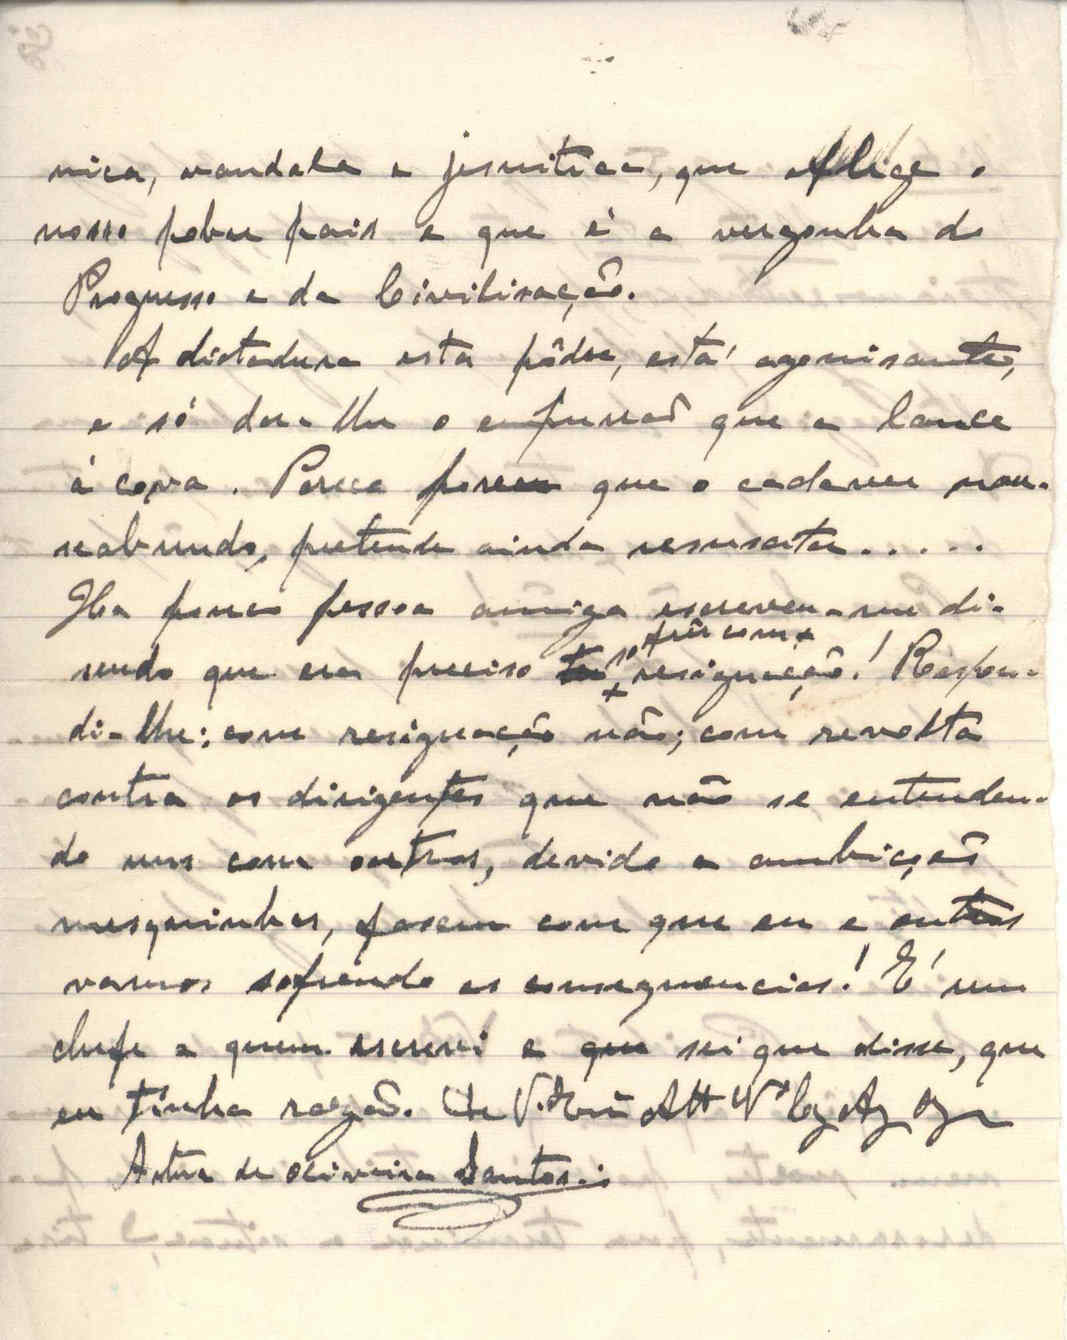 nica, vandala e jesuitica, que aflige o
nosso pobre pais e que é a vergonha do
Progresso e da Civilisação.
A dictadura esta pôdre, está agonisante,
e só dar-lhe o empurrão que a lance
á cova. Parece porem que o cadaver nau-
seabundo, pretende ainda resuscitar.....
Ha pouco pessoa amiga escreveu-me di-
sendo que era preciso sofrer com resignação! Respon-
di-lhe: com resignação não; com revolta
contra os dirigentes que não se entenden-
do uns com outros, devido a ambição
mesquinhas, fasem com que eu e outros
vamos sofrendo as consequencias! É um
chefe a quem escrevi e que sei que disse, que
eu tinha razão. De V. Att
Artur de Oliveira Santos